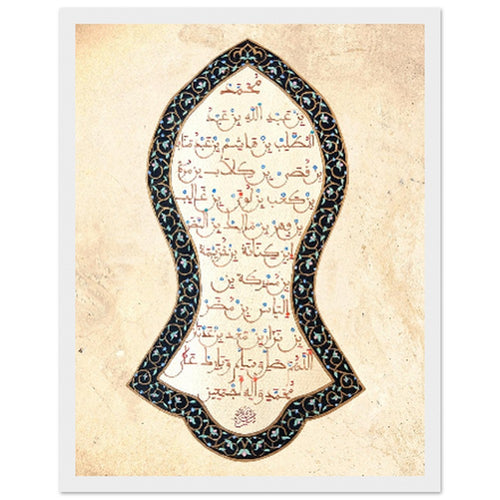 محمد
بن عبد الله بن عبد
المطلب بن هاشم بن عبد مناف
بن قصي بن كلاب بن مرة
بن كعب بن لؤي بن غالب
بن فهر بن مالك بن النضر
بن كنانة بن خزيمة
بن مدركة بن
الياس بن مضر
بن نزار بن معد بن عدنان
اللهم صل وسلم وبارك على
محمد وآله أجمعين